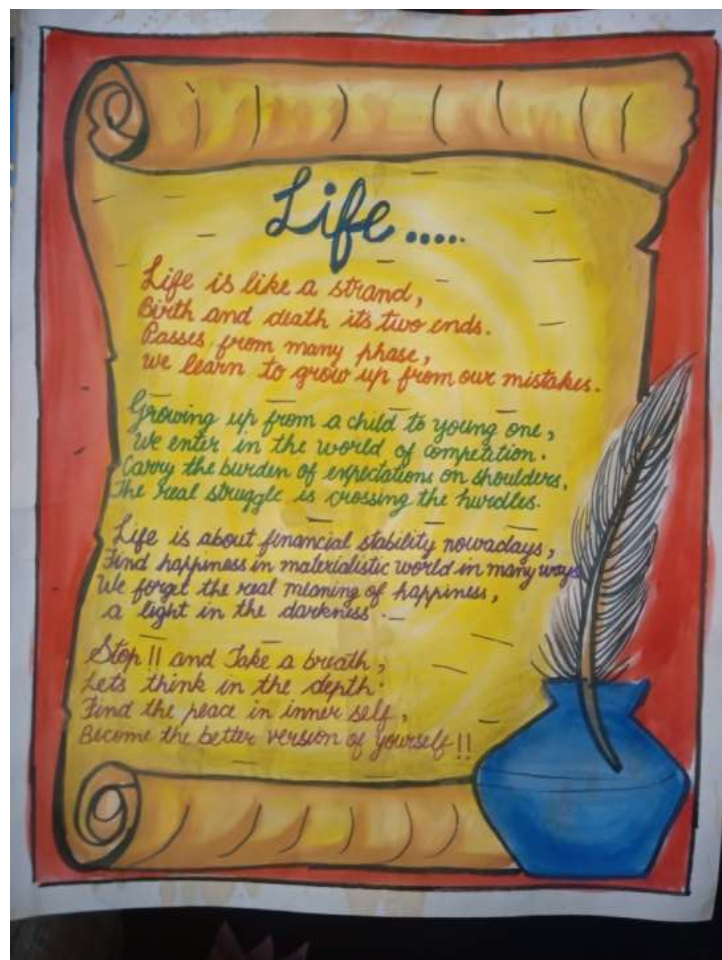 Life.....
Life is like a strand,
Birth and death it's two ends.
Passes from many phase,
we learn to grow up from our mistakes.
Growing up from a child to young one,
We enter in the world of competition.
Carry the burden of expectations on shoulders,
The real struggle is crossing the hurdles.
Life is about financial stability nowadays,
Find happiness in materialistic world in many ways
We forget the real meaning of happiness,
a light in the darkness.
Stop!! and Take a breath,
Lets think in the depth.
Find the peace in inner self,
Become the better version of yourself!!